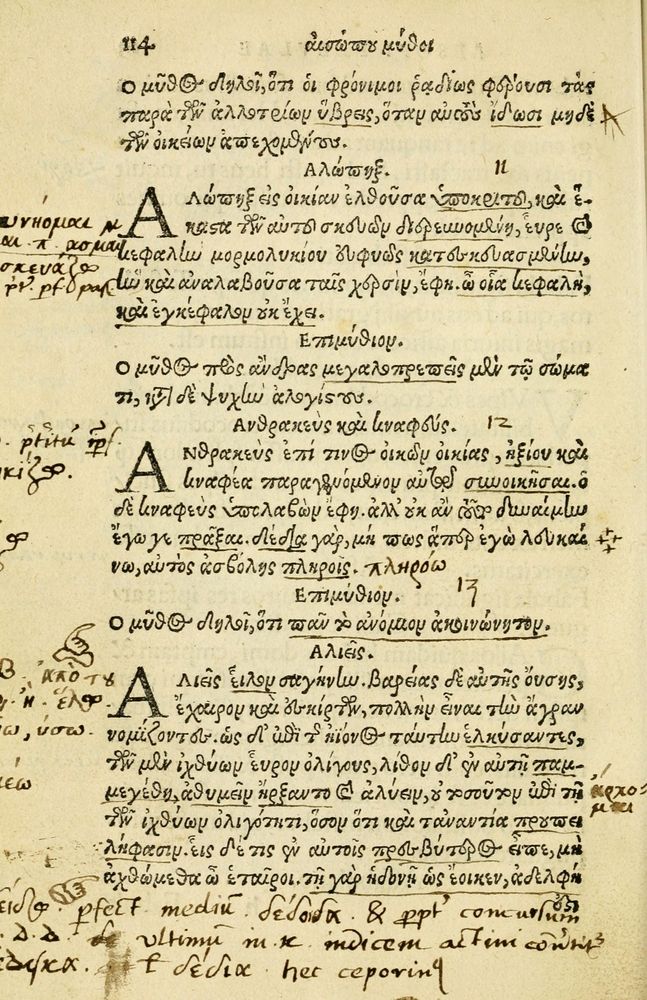 114 αἰσώπου μῦθοι
Ο μῦθος δηλοῖ, ὅτι οἱ φρόνιμοι ῥαδίως φέρουσι τὰς
παρὰ τῶν ἀλλοτρίων ὕβρεις, ὅταν αὐτοὺς ἴδωσι μηδὲ
τῶν οἰκείων ἀπεχομένους.
Αλώπηξ. 11
ΑΛώπηξ εἰς οἰκίαν ἐλθοῦσα ὑποκριτοῦ, καὶ ἕ-
καστα τῶν αὐτοῦ σκευῶν διερευνομένη, εὗρε καὶ
κεφαλὴν μορμολυκίου εὐφυῶς κατεσκευασμένην,
ἣν καὶ ἀναλαβοῦσα ταῖς χερσὶν, ἔφη. ὦ οἵα κεφαλὴ,
καὶ ἐγκέφαλον οὐκ ἔχει.
Επιμύθιον.
Ο μῦθος πρὸς ἄνδρας μεγαλοπρεπεῖς μὲν τῷ σώμα
τι, κατὰ δὲ ψυχὴν ἀλογίστους.
Ανθρακεὺς καὶ κναφεύς. 12
ΑΝθρακεὺς ἐπί τινος οἰκῶν οἰκίας, ἠξίου καὶ
κναφέα παραγενόμενον αὐτῷ συνοικῆσαι. ὁ
δὲ κναφεὺς ὑπολαβὼν ἔφη. ἀλλ' οὐκ ἂν τοῦτο δυναίμην
ἔγωγε πρᾶξαι. δέδια γὰρ, μή πως ἅπερ ἐγὼ λευκαί
νω, αὐτὸς ἀσβόλης πληροῖς. πληρόω
Επιμύθιον. 13
Ο μῦθος δηλοῖ, ὅτι πᾶν τὸ ἀνόμοιον ἀκοινώνητον.
Αλιεῖς.
ΑΛιεῖς εἷλκον σαγήνην. βαρείας δὲ αὐτῆς οὔσης,
ἔχαιρον καὶ ἐσκίρτων, πολλὴν εἶναι τὴν ἄγραν
νομίζοντες. ὡς δ' ἐπὶ τῆς ἠϊόνος ταύτην ἑλκύσαντες,
τῶν μὲν ἰχθύων εὗρον ὀλίγους, λίθον δ' ἐν αὐτῇ παμ-
μεγέθη, ἀθυμεῖν ἤρξαντο καὶ ἀλύειν, οὐ τοσοῦτον ἐπὶ τῇ
τῶν ἰχθύων ὀλιγότητι, ὅσον ὅτι καὶ τἀναντία προυπει
λήφασιν. εἷς δέ τις ἐν αὐτοῖς πρεσβύτερος εἶπε, μὴ
ἀχθώμεθα ὦ ἑταῖροι. τῇ γὰρ ἡδονῇ ὡς ἔοικεν, ἀδελφή
perfect medium δέδοιδα. &
ultimum in κ indicem activi
δέδια hec